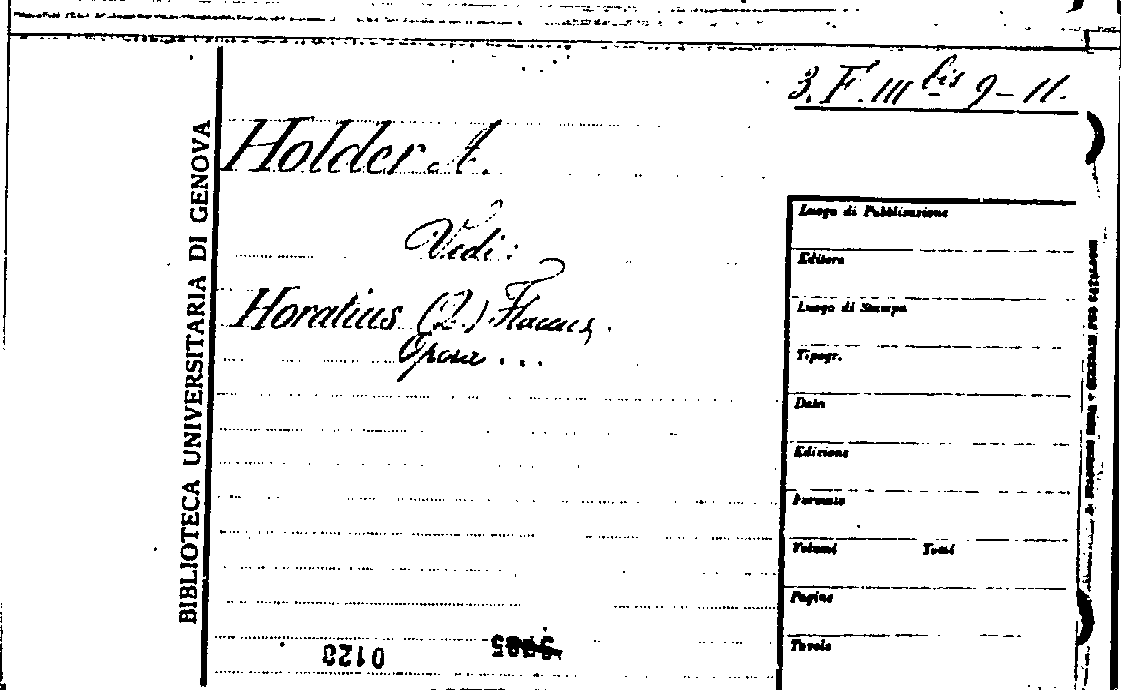 3. F. III bis 9-11.
BIBLIOTECA UNIVERSITARIA DI GENOVA
Holder A.
Vedi:
Horatius (2.) Flaccus,
Opera ...
Luogo di Pubblicazione
Editore
Luogo di Stampa
Tipogr.
Data
Edizione
Formato
Volumi Tomi
Pagine
Tavole
0128